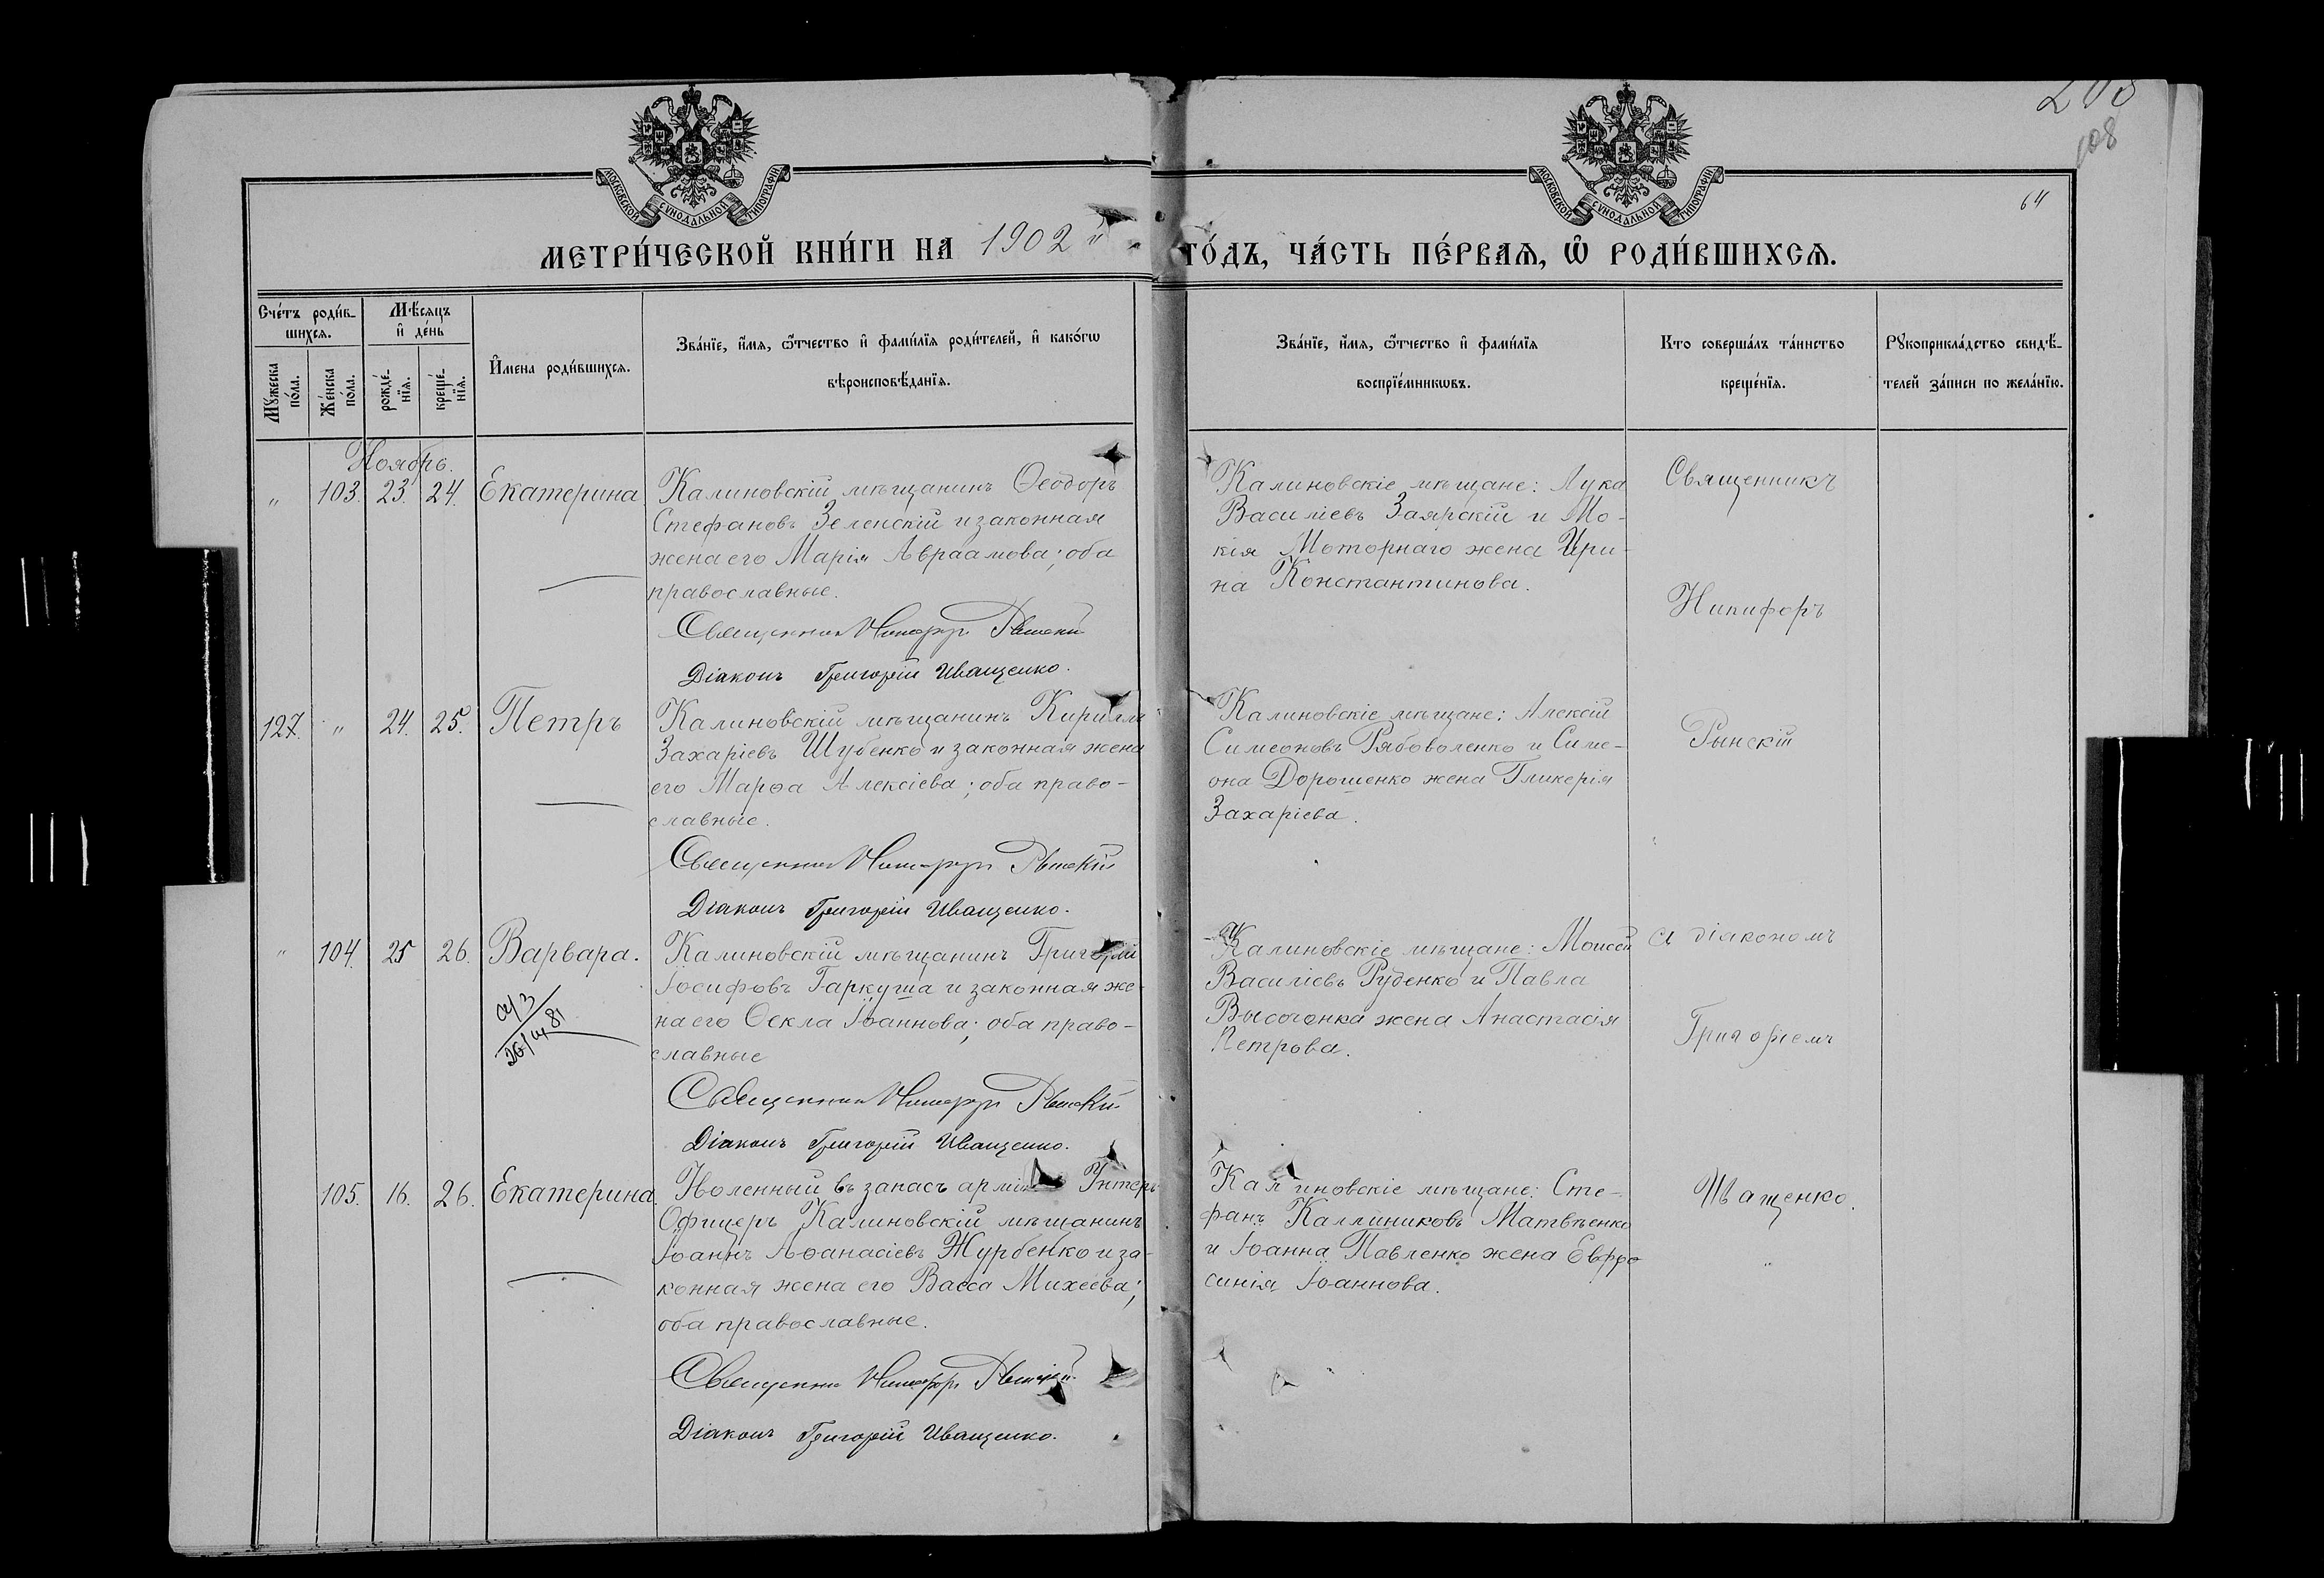 208
108
64
МОСКОВСКОЙ СУНОДАЛЬНОЙ ТИПОГРАФІИ
МОСКОВСКОЙ СУНОДАЛЬНОЙ ТИПОГРАФІИ
МЕТРИ́ЧЕСКОЙ КНИ́ГИ НА 1902 й ГО́ДЪ, ЧА́СТЬ ПЕ́РВАЯ, Ѽ РОДИ́ВШИХСѦ.
Сче́тъ роди́в-
шихсѧ.
Мꙋ́жеска по́ла.
Же́нска по́ла.
Мѣ́сяцъ
и҆ де́нь
рожде́-
нїѧ.
креще́-
нїѧ.
И҆мена роди́вшихсѧ.
Зва́нїе, и҆́мѧ, ѻ҆́тчество и҆ фами́лїѧ роди́телей, и҆ како́гѡ
вѣроисповѣ́данїѧ.
Зва́нїе, и҆́мѧ, ѻ҆́тчество и҆ фами́лїѧ
воспрїе́мникѡвъ.
Кто соверша́лъ та́инство
креще́нїѧ.
Рꙋкоприкла́дство свидѣ́-
телей за́писи по жела́нїю.
Ноябрь.
" 103. 23. 24. Екатерина
Калиновскій мѣщанинъ Ѳеодоръ
Стефановъ Зеленскій и законная
жена его Марія Авраамова; оба
православные.
Священник Никифор Рынскій
Діаконъ Григорій Иващенко.
Калиновскіе мѣщане: Лука
Василіевъ Заярскій и Мо-
кія Моторнаго жена Ири-
на Константинова.
127. " 24. 25. Петръ
Калиновскій мѣщанинъ Кириллъ
Захаріевъ Шубенко и законная жена
его Марѳа Алексіева; оба право-
славные.
Священник Никифор Рынскій
Діаконъ Григорій Иващенко.
Калиновскіе мѣщане: Алексій
Симеоновъ Рябоволенко и Симе-
она Дорошенко жена Гликерія
Захаріева.
" 104. 25 26. Варвара.
Калиновскій мѣщанинъ Григорій
Іосифовъ Гаркуша и законная же-
на его Ѳекла Іоаннова; оба право-
славные
Священник Никифор Рынскій
Діаконъ Григорій Иващенко.
Калиновскіе мѣщане: Моисей
Василіевъ Руденко и Павла
Высоченка жена Анастасія
Петрова.
105. 16. 26. Екатерина.
Уволенный въ запасъ арміи Унтеръ
Офицеръ Калиновскій мѣщанинъ
Іоаннъ Аѳанасіевъ Журбенко и за-
конная жена его Васса Михеева;
оба православные.
Священник Никифор Рынскій
Діаконъ Григорій Иващенко.
Калиновскіе мѣщане: Сте-
фанъ Каллиниковъ Матвѣенко
и Іоанна Павленко жена Евфро
синія Іоаннова.
Священникъ
Никифоръ
Рынскій
съ діакономъ
Григоріемъ
Иващенко.